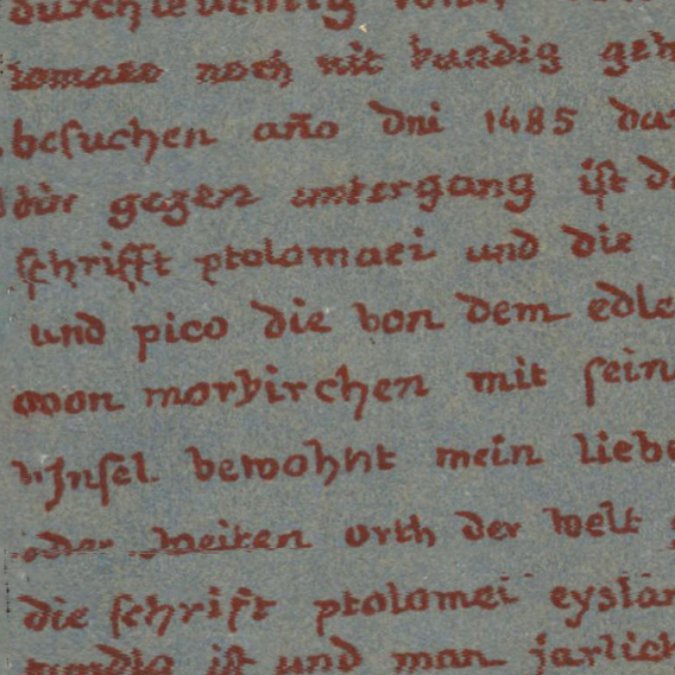 durchleuchtig
noch nit kundig
besuchen año dni 1485
gegen untergang ist
schrifft ptolomaei und die
und pico die von dem edle
von morbirchen mit sein
Insel bewohnt mein liebe
oder weiten orth der welt
die schrift ptolomei eyslan
kundig ist und man jarlich